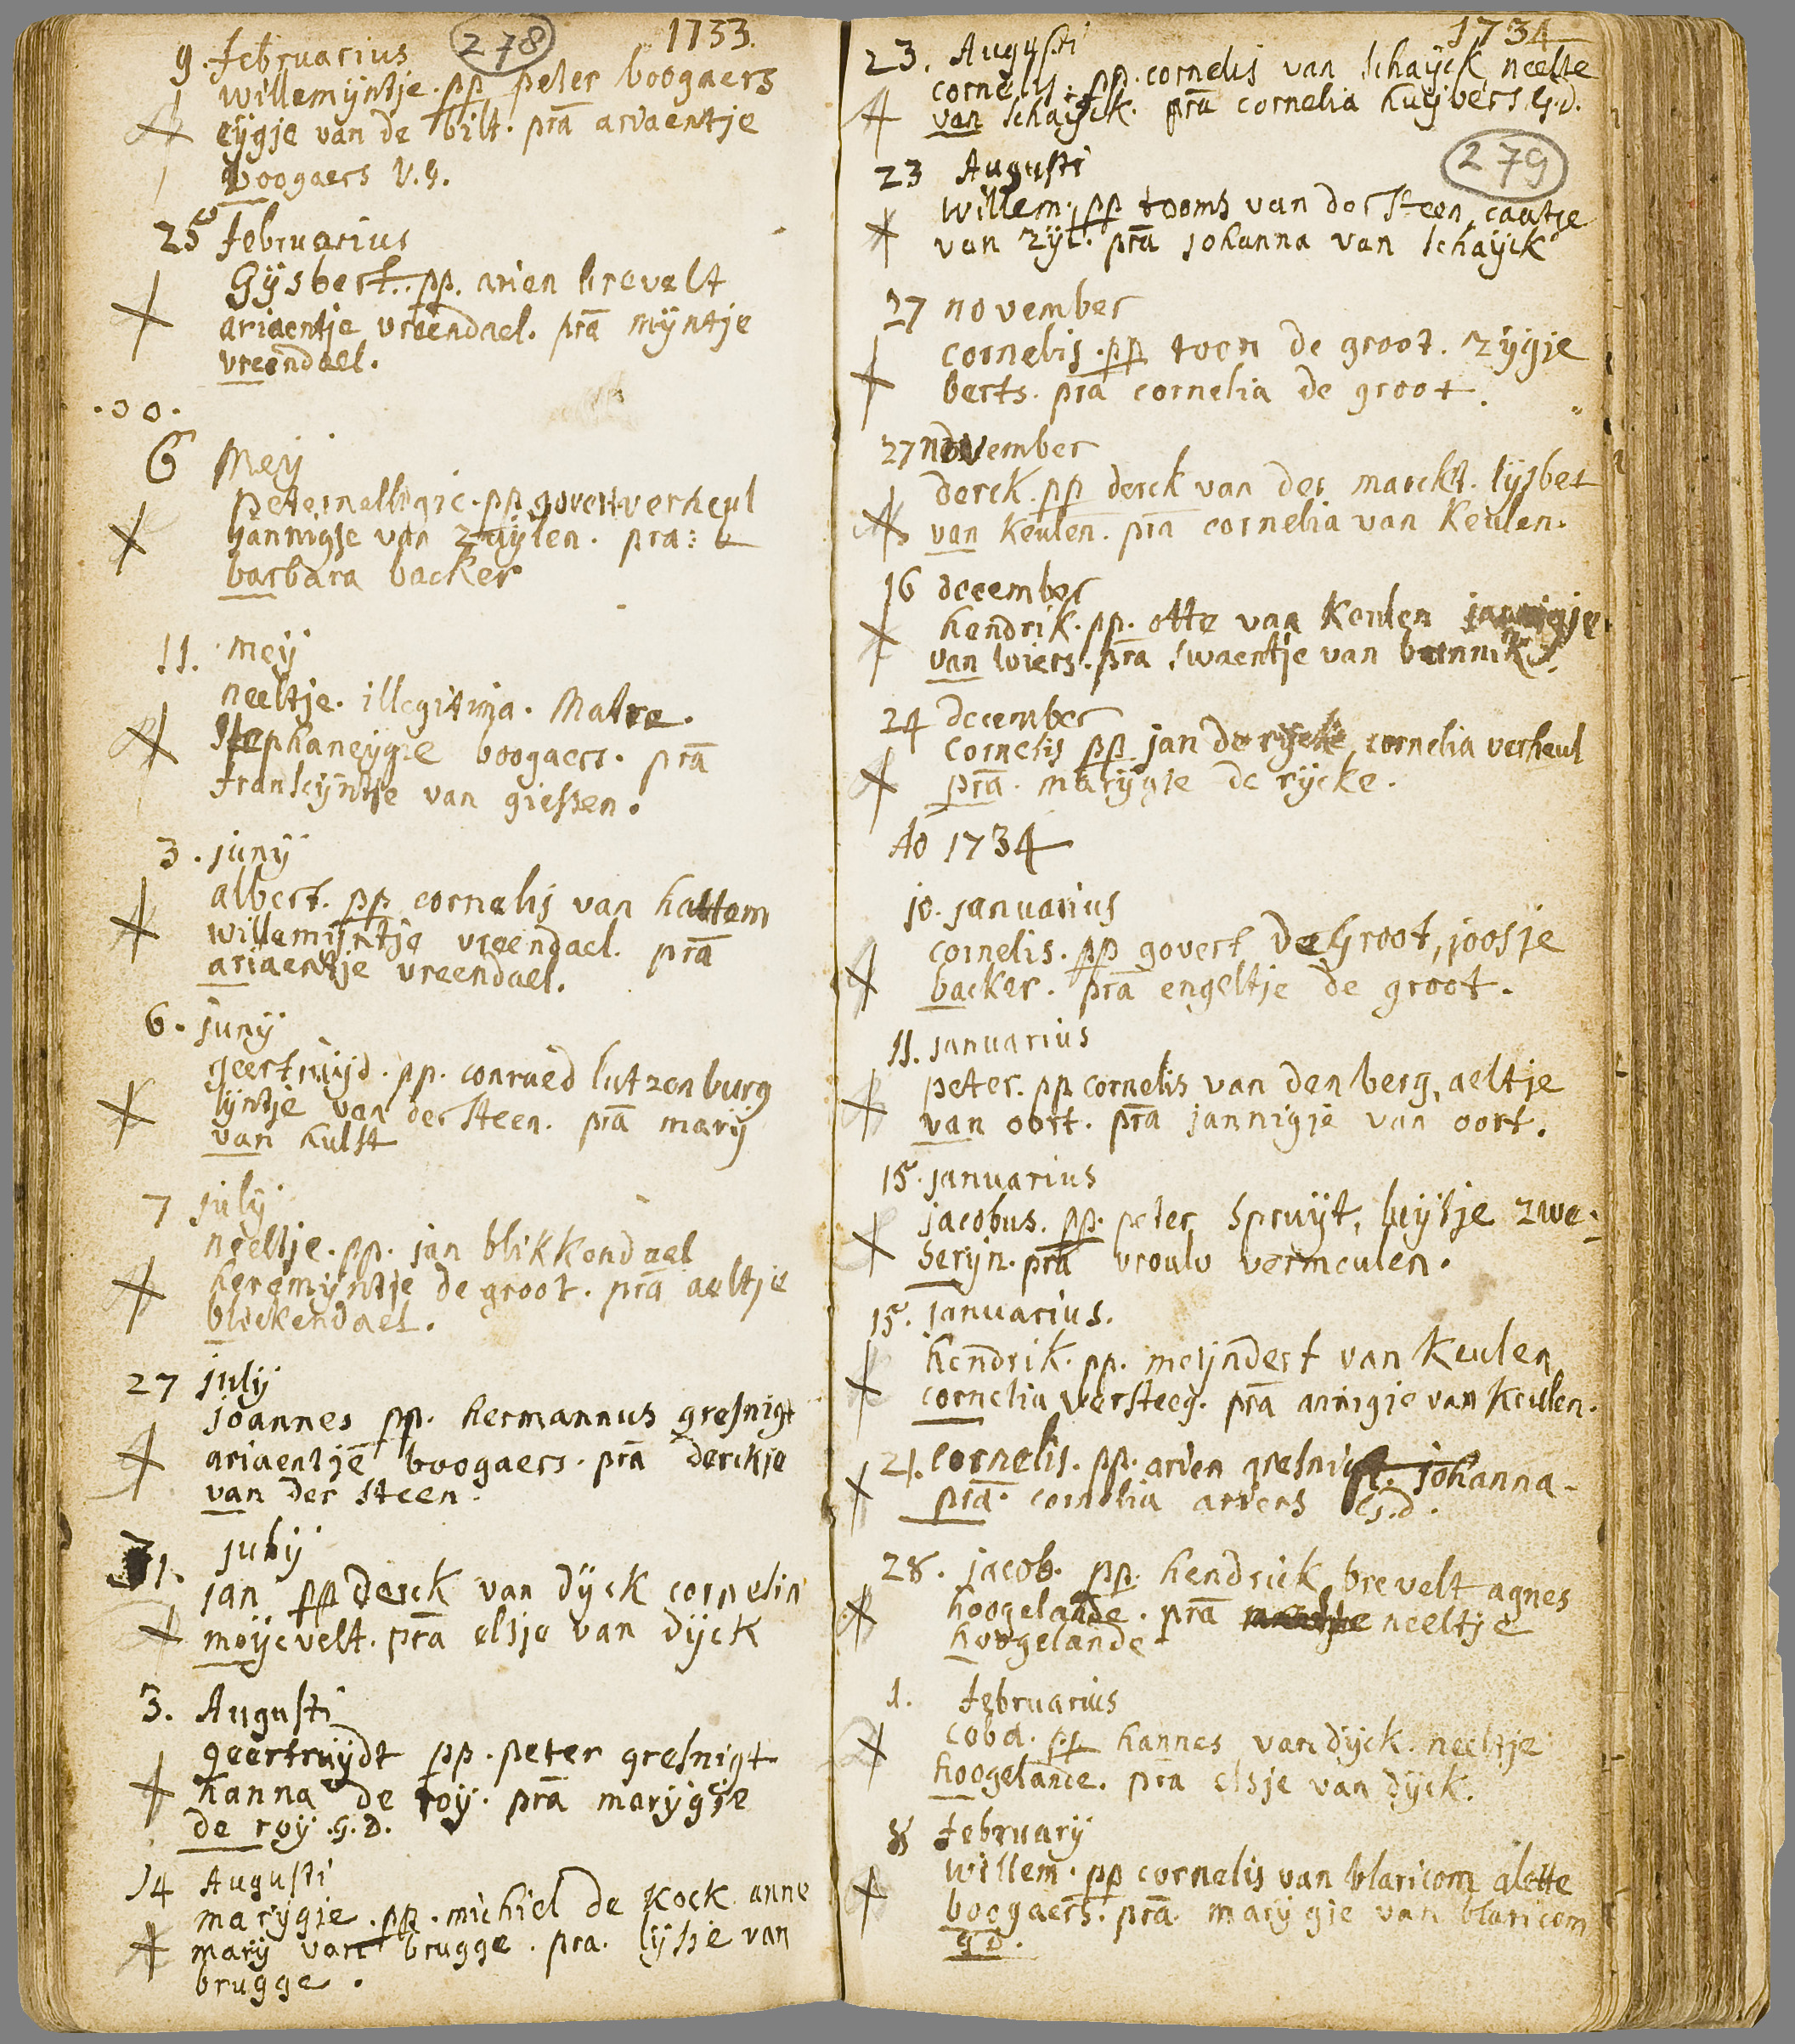 278
1733.
9. februarius
willemijntje. pp peter boogaers
eijgje van de bilt. prā ariaentje
boogaers V.G.
25 februarius
Gijsbert. pp. arien brevelt
ariaentje vreendael. prā mijntje
vreendael.
.oo.
6 Meij
peternelligie. pp govert verheul
jannigje van zuijlen. pra:
barbara backer
11. meij
neeltje. illegitima. Matre.
Stephaneijgie boogaers. prā
franscijntje van giessen.
3. junij
albert. pp cornelis van hattem
willemijntje vreendael. prā
ariaentje vreendael.
6. junij
geertruijd. pp. conraed lutzenburg
lijntje van der Steen. prā marij
van hulst
7 julij
neeltje. pp. jan blikkendael
heremijntje de groot. prā aeltje
blickendael.
27 julij
joannes pp. hermannus gresnigt
ariaentje boogaers. prā derckje
van der steen.
31. julij
jan pp derck van dijck cornelia
moijevelt. prā elsje van dijck
3. Augusti
geertruijdt pp. peter gresnigt
hanna de roij. prā marijgje
de roij. G.D.
14 Augusti
marijgie. pp. michiel de Kock anne
marij van brugge. pra. lijsje van
brugge.
1734
23. Augusti
cornelis. pp. cornelis van Schaijck neeltje
van Schaijck. prā cornelia huijbers G.d.
279
23 Augusti
willem. pp tooms van der Steen, caatje
van zijl. prā johanna van Schaijck
27 november
cornelis. pp toon de groot. zijgje
berts. prā cornelia de groot.
27 november
derck. pp derck van der marckt. lijsbet
van Keulen. prā cornelia van Keulen.
16 december
hendrik. pp. otte van Keulen jannigje
van wiers. pra swaentje van bunnik.
24 december
Cornelis pp. jan de rijcke, cornelia verheul
prā. marijgie de rijcke.
Ao 1734
10. januarius
cornelis. pp govert de Groot, joosje
backer. prā engeltje de groot.
11. januarius
peter. pp cornelis van den berg, aeltje
van oort. prā jannigje van oort.
15. januarius
jacobus. pp. peter Spruijt, luijtje zwe-
serijn. prā vrouw vermeulen.
15. januarius.
hendrik. pp. meijndert van Keulen
cornelia versteeg. prā annigie van Keulen.
21. cornelis. pp. arien gresnigt. johanna-
prā. cornelia ariens G.d.
28. jacob. pp. hendrick brevelt agnes
hoogelande. prā neeltje
hoogelande
1. februarius
coba. pp hannes van dijck. neeltje
hoogelande. pra elsje van dijck.
8 februarij
willem. pp cornelis van blaricom alette
boogaers. prā. marijgie van blaricom
g D.